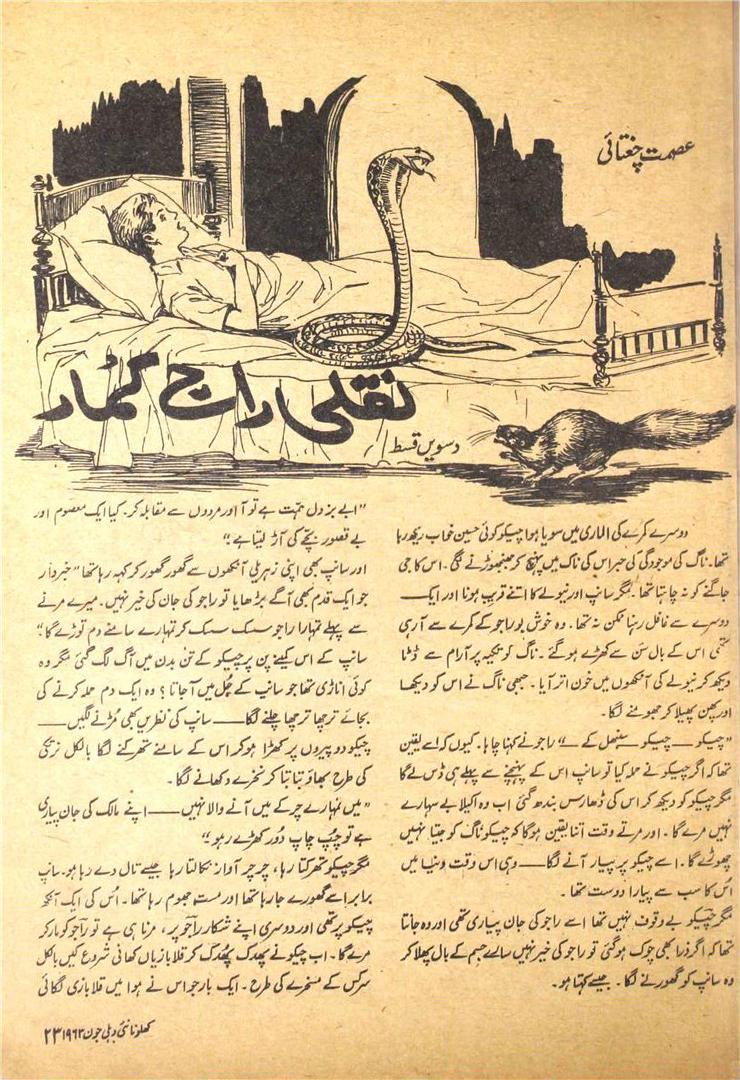 عصمت چغتائی
نقلی راج کمار
دسویں قسط
دوسرے کمرے کی الماری میں سویا ہوا چیکو کوئی حسین خواب دیکھ رہا
تھا۔ ناگ کی موجودگی کی خبر اس کی ناک میں پہنچ کر جھنجھوڑنے لگی۔ اس کا جی
جاگنے کو نہ چاہتا تھا۔ مگر سانپ اور نیولے کا اتنے قریب ہونا اور ایک
دوسرے سے غافل رہنا ممکن نہ تھا۔ وہ خوش بو راجو کے کمرے سے آ رہی
تھی اس کے بال سن سے کھڑے ہو گئے۔ ناگ کو تکیہ پر آرام سے ڈٹا
دیکھ کر نیولے کی آنکھوں میں خون اتر آیا۔ جبھی ناگ نے اس کو دیکھا
اور پھن پھیلا کر جھومنے لگا۔
”چیکو — چیکو سنبھل کے —“ راجو نے کہنا چاہا۔ کیوں کہ اسے یقین
تھا کہ اگر چیکو نے حملہ کیا تو سانپ اس کے پہنچنے سے پہلے ہی ڈس لے گا
مگر چیکو کو دیکھ کر اس کی ڈھارس بندھ گئی اب وہ اکیلا بے سہارے
نہیں مرے گا۔ اور مرتے وقت اتنا یقین ہوگا کہ چیکو ناگ کو جیتا نہیں
چھوڑے گا۔ اسے چیکو پر پیار آنے لگا — وہی اس وقت دنیا میں
اُس کا سب سے پیارا دوست تھا۔
مگر چیکو بے وقوف نہیں تھا اسے راجو کی جان پیاری تھی اور وہ جانتا
تھا کہ اگر ذرا بھی چوک ہو گئی تو راجو کی خیر نہیں سارے جسم کے بال پھلا کر
وہ سانپ کو گھورنے لگا۔ جیسے کہتا ہو۔
”ابے بزدل ہمّت ہے تو آ اور مردوں سے مقابلہ کر۔ کیا ایک معصوم اور
بے قصور بچّے کی آڑ لیتا ہے؟“
اور سانپ بھی اپنی زہریلی آنکھوں سے گھور گھور کر کہہ رہا تھا ”خبردار
جو ایک قدم بھی آگے بڑھایا تو راجو کی جان کی خیر نہیں۔ میرے مرنے
سے پہلے تمہارا راجو سسک سسک کر تمہارے سامنے دم توڑے گا“
سانپ کے اس کمینے پن پر چیکو کے تن بدن میں آگ لگ گئی مگر وہ
کوئی اناڑی تھا جو سانپ کے جُل میں آ جاتا؟ وہ ایک دم حملہ کرنے کی
بجائے ترچھا ترچھا چلنے لگا — سانپ کی نظریں بھی مُڑنے لگیں —
چیکو دو پیروں پر کھڑا ہو کر اس کے سامنے تھرکنے لگا بالکل نرتکی
کی طرح بھاؤ بتا بتا کر نخرے دکھانے لگا۔
”میں تمہارے چرکے میں آنے والا نہیں — اپنے مالک کی جان پیاری
ہے تو چُپ چاپ دُور کھڑے رہو“
مگر چیکو تھرکتا رہا، چرچر آواز نکالتا رہا جیسے تال دے رہا ہو۔ سانپ
برابر اسے گھورے جا رہا تھا اور مست جھوم رہا تھا۔ اُس کی ایک آنکھ
چیکو پر تھی اور دوسری اپنے شکار راجو پر، مرنا ہی ہے تو راجو کو مار کر
مرے گا۔ اب چیکو نے پھدک پھُدک کر قلابازیاں کھانی شروع کیں بالکل
سرکس کے مسخرے کی طرح۔ ایک بار جو اس نے ہوا میں قلابازی لگائی
کھلونا نئی دہلی جون ۱۹۶۳ ۲۳